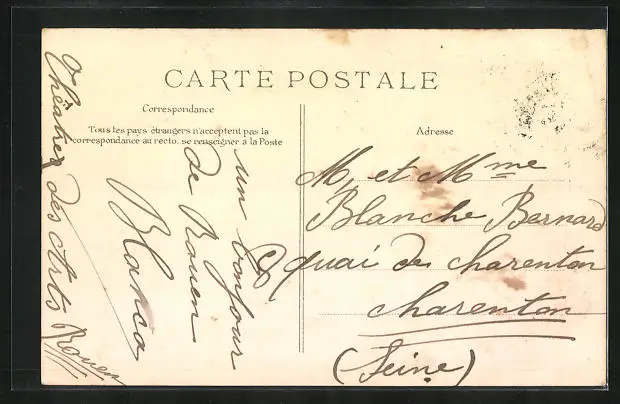 CARTE POSTALE
Correspondance
Tous les pays étrangers n'acceptent pas la
correspondance au recto, se renseigner à la Poste
Adresse
un bonjour
de Rouen
Blanca
Théâtre des Arts Rouen
M, et Mme
Blanche Bernard
quai de Charenton
Charenton
(Seine)